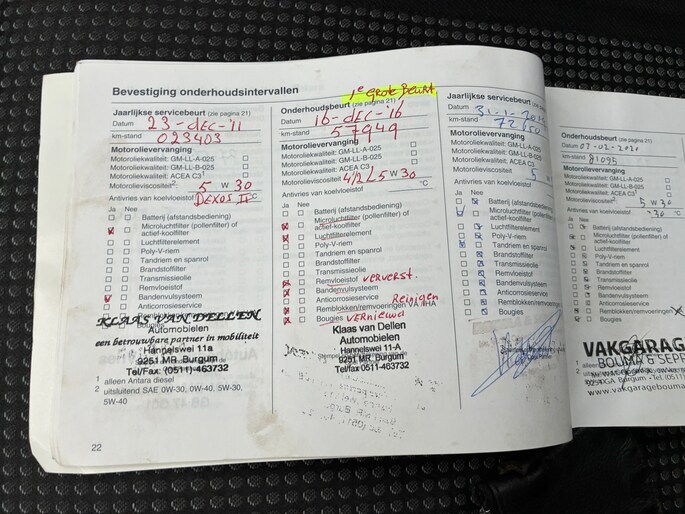 Bevestiging onderhoudsintervallen
1e GROTE BEURT
Jaarlijkse servicebeurt (zie pagina 21)
Datum 23-DEC-'11
km-stand 023403
Motorolievervanging
Motoroliekwaliteit: GM-LL-A-025
Motoroliekwaliteit: GM-LL-B-025
Motoroliekwaliteit: ACEA C3¹
Motorolieviscositeit²: 5 W 30
Antivries van koelvloeistof DEXOS II °C
Ja Nee
Batterij (afstandsbediening)
Microluchtfilter (pollenfilter) of
actief-koolfilter
Luchtfilterelement
Poly-V-riem
Tandriem en spanrol
Brandstoffilter
Transmissieolie
Remvloeistof
Bandenvulsysteem
Anticorrosieservice
KLAAS VAN DELLEN
Automobielen
een betrouwbare partner in mobiliteit
Hannelswei 11a
9251 MR Burgum
Tel/Fax (0511)-463732
1 alleen Antara diesel
2 uitsluitend SAE 0W-30, 0W-40, 5W-30,
5W-40
22
Onderhoudsbeurt (zie pagina 21)
Datum 16-DEC-'16
km-stand 57949
Motorolievervanging
Motoroliekwaliteit: GM-LL-A-025
Motoroliekwaliteit: GM-LL-B-025
Motoroliekwaliteit: ACEA C3¹
Motorolieviscositeit 4½L 5 W 30
Antivries van koelvloeistof °C
Ja Nee
Batterij (afstandsbediening)
Microluchtfilter (pollenfilter) of
actief-koolfilter
Luchtfilterelement
Poly-V-riem
Tandriem en spanrol
Brandstoffilter
Transmissieolie
Remvloeistof ververst.
Bandenvulsysteem
Anticorrosieservice Reinigen
Remblokken/remvoeringen VA HA
Bougies vernieuwd
Klaas van Dellen
Automobielen
Hannelswei 11-A
9251 MR Burgum
Tel/Fax 0511-463732
Jaarlijkse servicebeurt (zie pagina
Datum 31-1-
km-stand
Motorolievervanging
Motoroliekwaliteit: GM-LL-A-025
Motoroliekwaliteit: GM-LL-B-025
Motoroliekwaliteit: ACEA C3¹
Motorolieviscositeit 5
Antivries van koelvloeistof
Ja Nee
Batterij (afstandsbediening)
Microluchtfilter (pollenfilter)
actief-koolfilter
Luchtfilterelement
Poly-V-riem
Tandriem en spanrol
Brandstoffilter
Transmissieolie
Remvloeistof
Bandenvulsysteem
Anticorrosieservice
Remblokken/remvoeringen
Bougies
Onderhoudsbeurt (zie pagina 21)
Datum 07-02-2020
km-stand 81095
Motorolievervanging
Motoroliekwaliteit: GM-LL-A-025
Motoroliekwaliteit: GM-LL-B-025
Motoroliekwaliteit: ACEA C3¹
Motorolieviscositeit 5 W 30
Antivries van koelvloeistof
-30 °C
Ja Nee
Batterij (afstandsbediening)
Microluchtfilter (pollenfilter) of
actief-koolfilter
Luchtfilterelement
Poly-V-riem
Tandriem en spanrol
Brandstoffilter
Transmissieolie
Remvloeistof
Bandenvulsysteem
Anticorrosieservice
Remblokken/remvoeringen
Bougies
VAKGARAG
BOUMA & SEPP
Burgum Tel. (0511)
www.vakgaragebouma